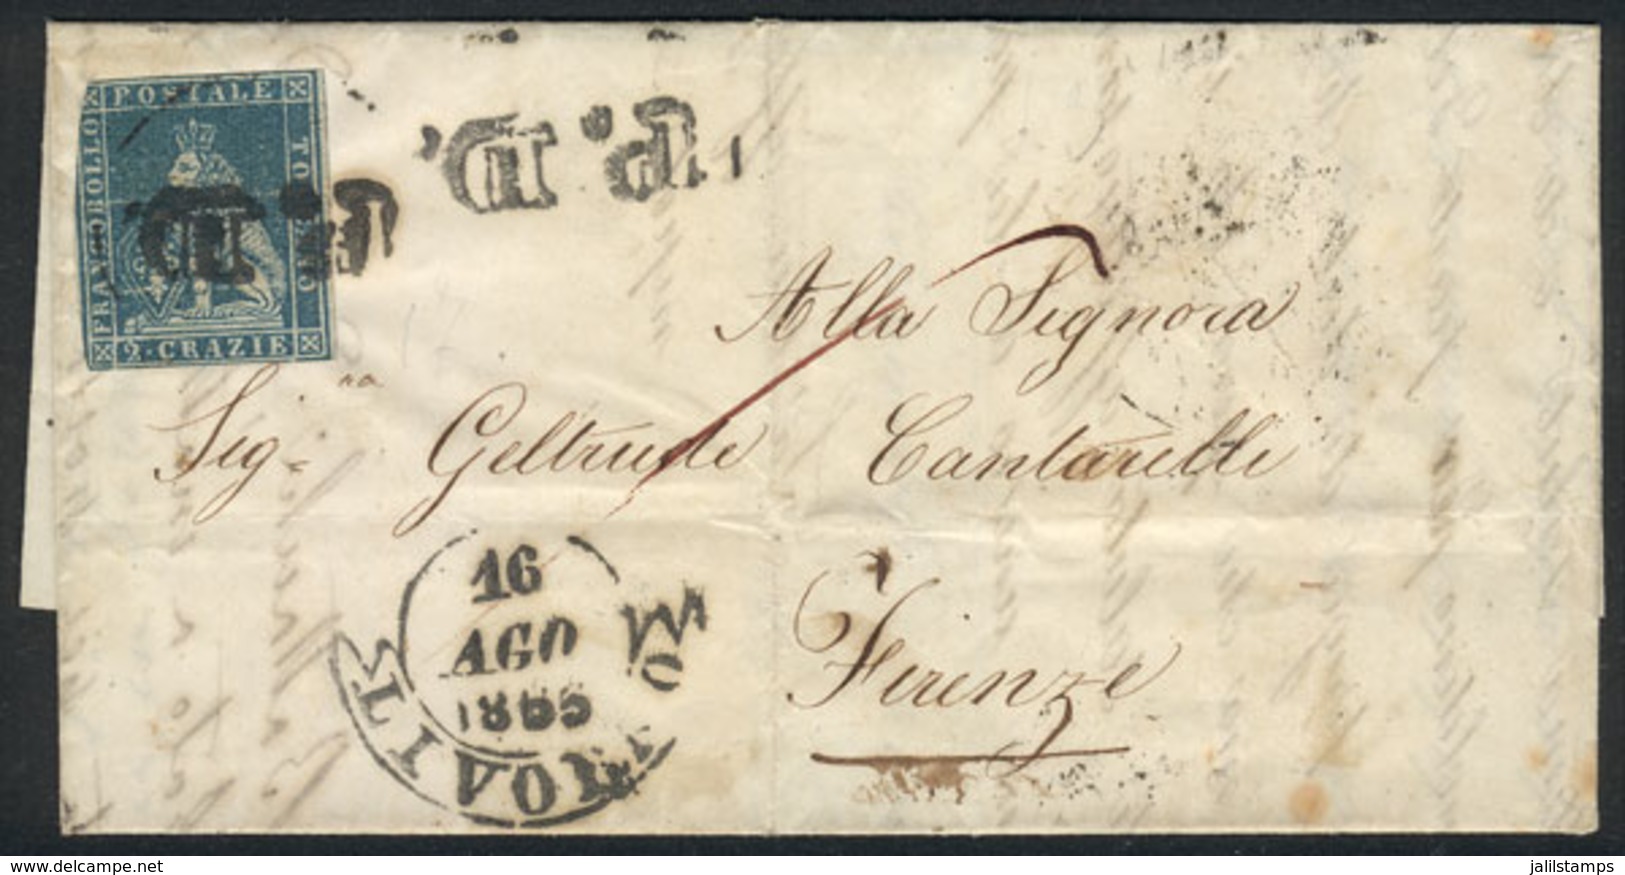 FRANCOBOLLO POSTALE TOSCANO
2·CRAZIE
P.D.
P.D.
Alla Signora
Sig.ra Geltrude Cantarelli
Firenze
16
AGO
1855
jalilstamps
www.delcampe.net